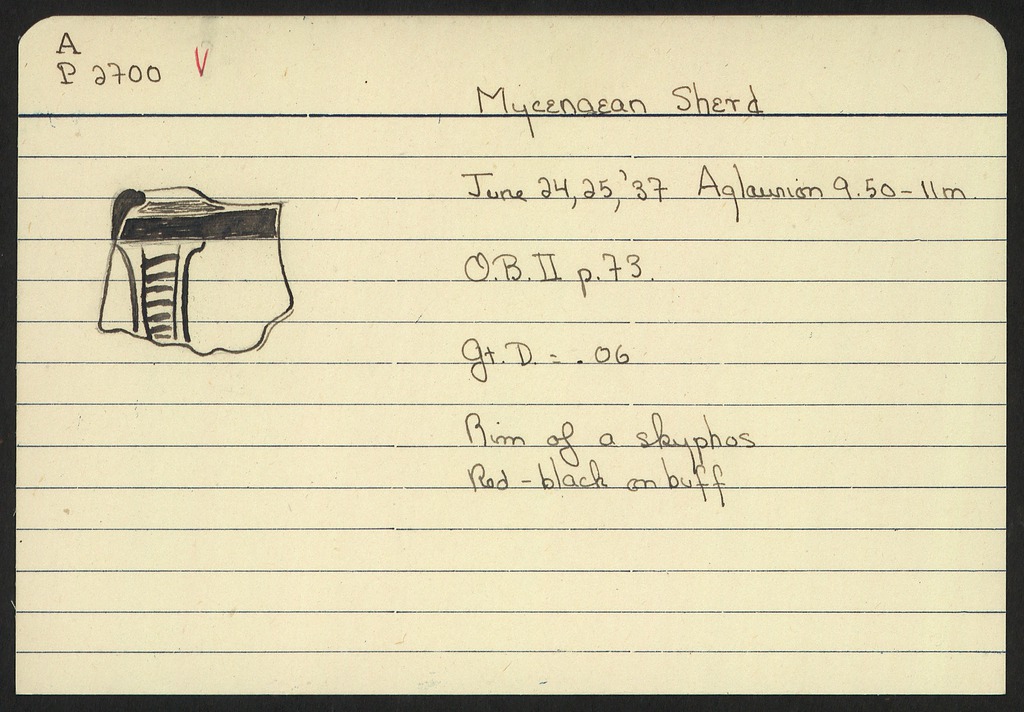 A
P 2700 V
Mycenaean Sherd
June 24, 25, '37 Aglaurion 9.50 - 11m.
O.B. II p. 73.
Gt. D. = .06
Rim of a skyphos
Red - black on buff